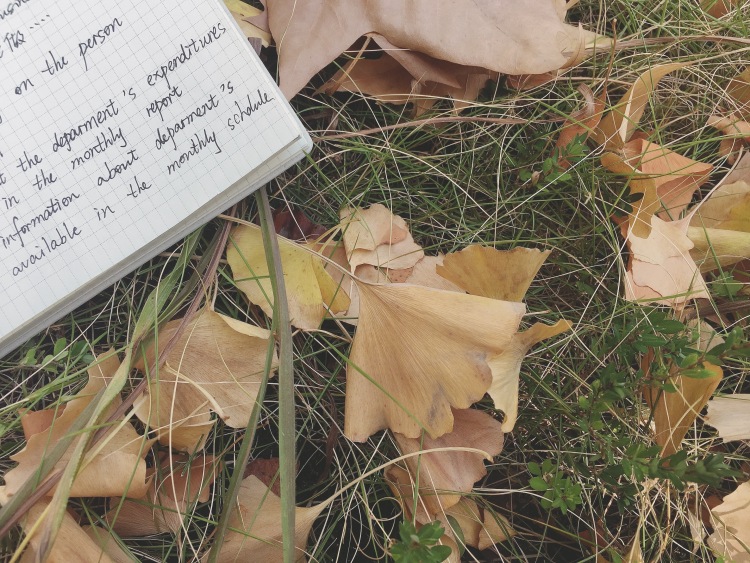 on the person
the deparment's expenditures
in the monthly report
information about deparment's
available in the monthly schdule